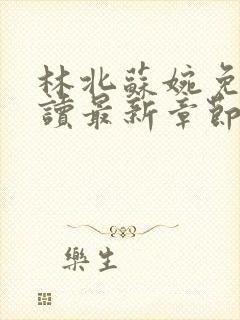 林北蘇婉免
讀最新章節
樂生